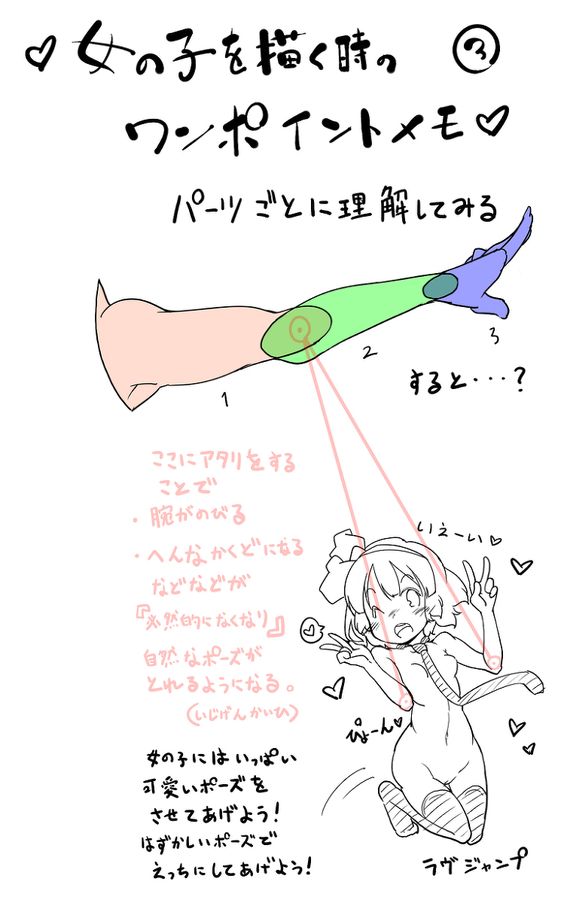 ♡女の子を描く時の ③
ワンポイントメモ♡
パーツごとに理解してみる
1
2
3
すると・・・?
ここにアタリをする
ことで
・腕がのびる
・へんなかくどになる
などなどが
『必然的になくなり』
自然なポーズが
とれるようになる。
(いじげんかいひ)
いえーい♡
ぴょーん♡
女の子にはいっぱい
可愛いポーズを
させてあげよう!
はずかしいポーズで
えっちにしてあげよう!
ラヴジャンプ